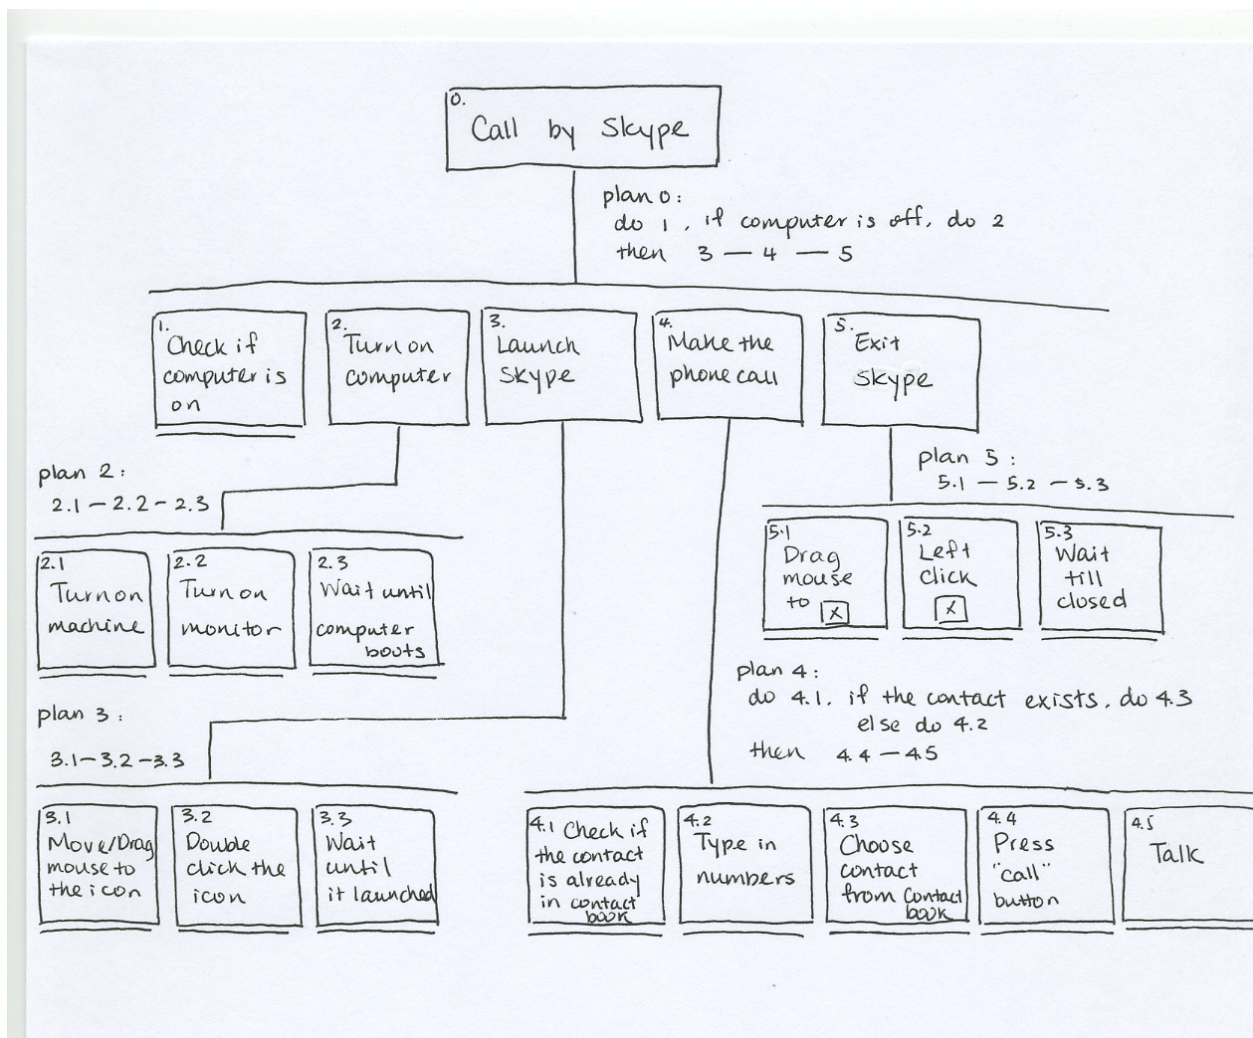 0.
Call by Skype
plan 0:
do 1, if computer is off, do 2
then 3 — 4 — 5
1.
Check if
computer is
on
2.
Turn on
computer
3.
Launch
Skype
4.
Make the
phone call
5.
Exit
Skype
plan 2:
2.1 — 2.2 - 2.3
2.1
Turn on
machine
2.2
Turn on
monitor
2.3
Wait until
computer
boots
plan 5:
5.1 — 5.2 - 5.3
5.1
Drag
mouse
to X
5.2
Left
click
X
5.3
Wait
till
closed
plan 3:
3.1-3.2-3.3
3.1
Move/Drag
mouse to
the icon
3.2
Double
click the
icon
3.3
Wait
until
it launched
plan 4:
do 4.1, if the contact exists, do 4.3
else do 4.2
then 4.4 — 4.5
4.1 Check if
the contact
is already
in contact
book
4.2
Type in
numbers
4.3
Choose
contact
from Contact
book
4.4
Press
"call"
button
4.5
Talk